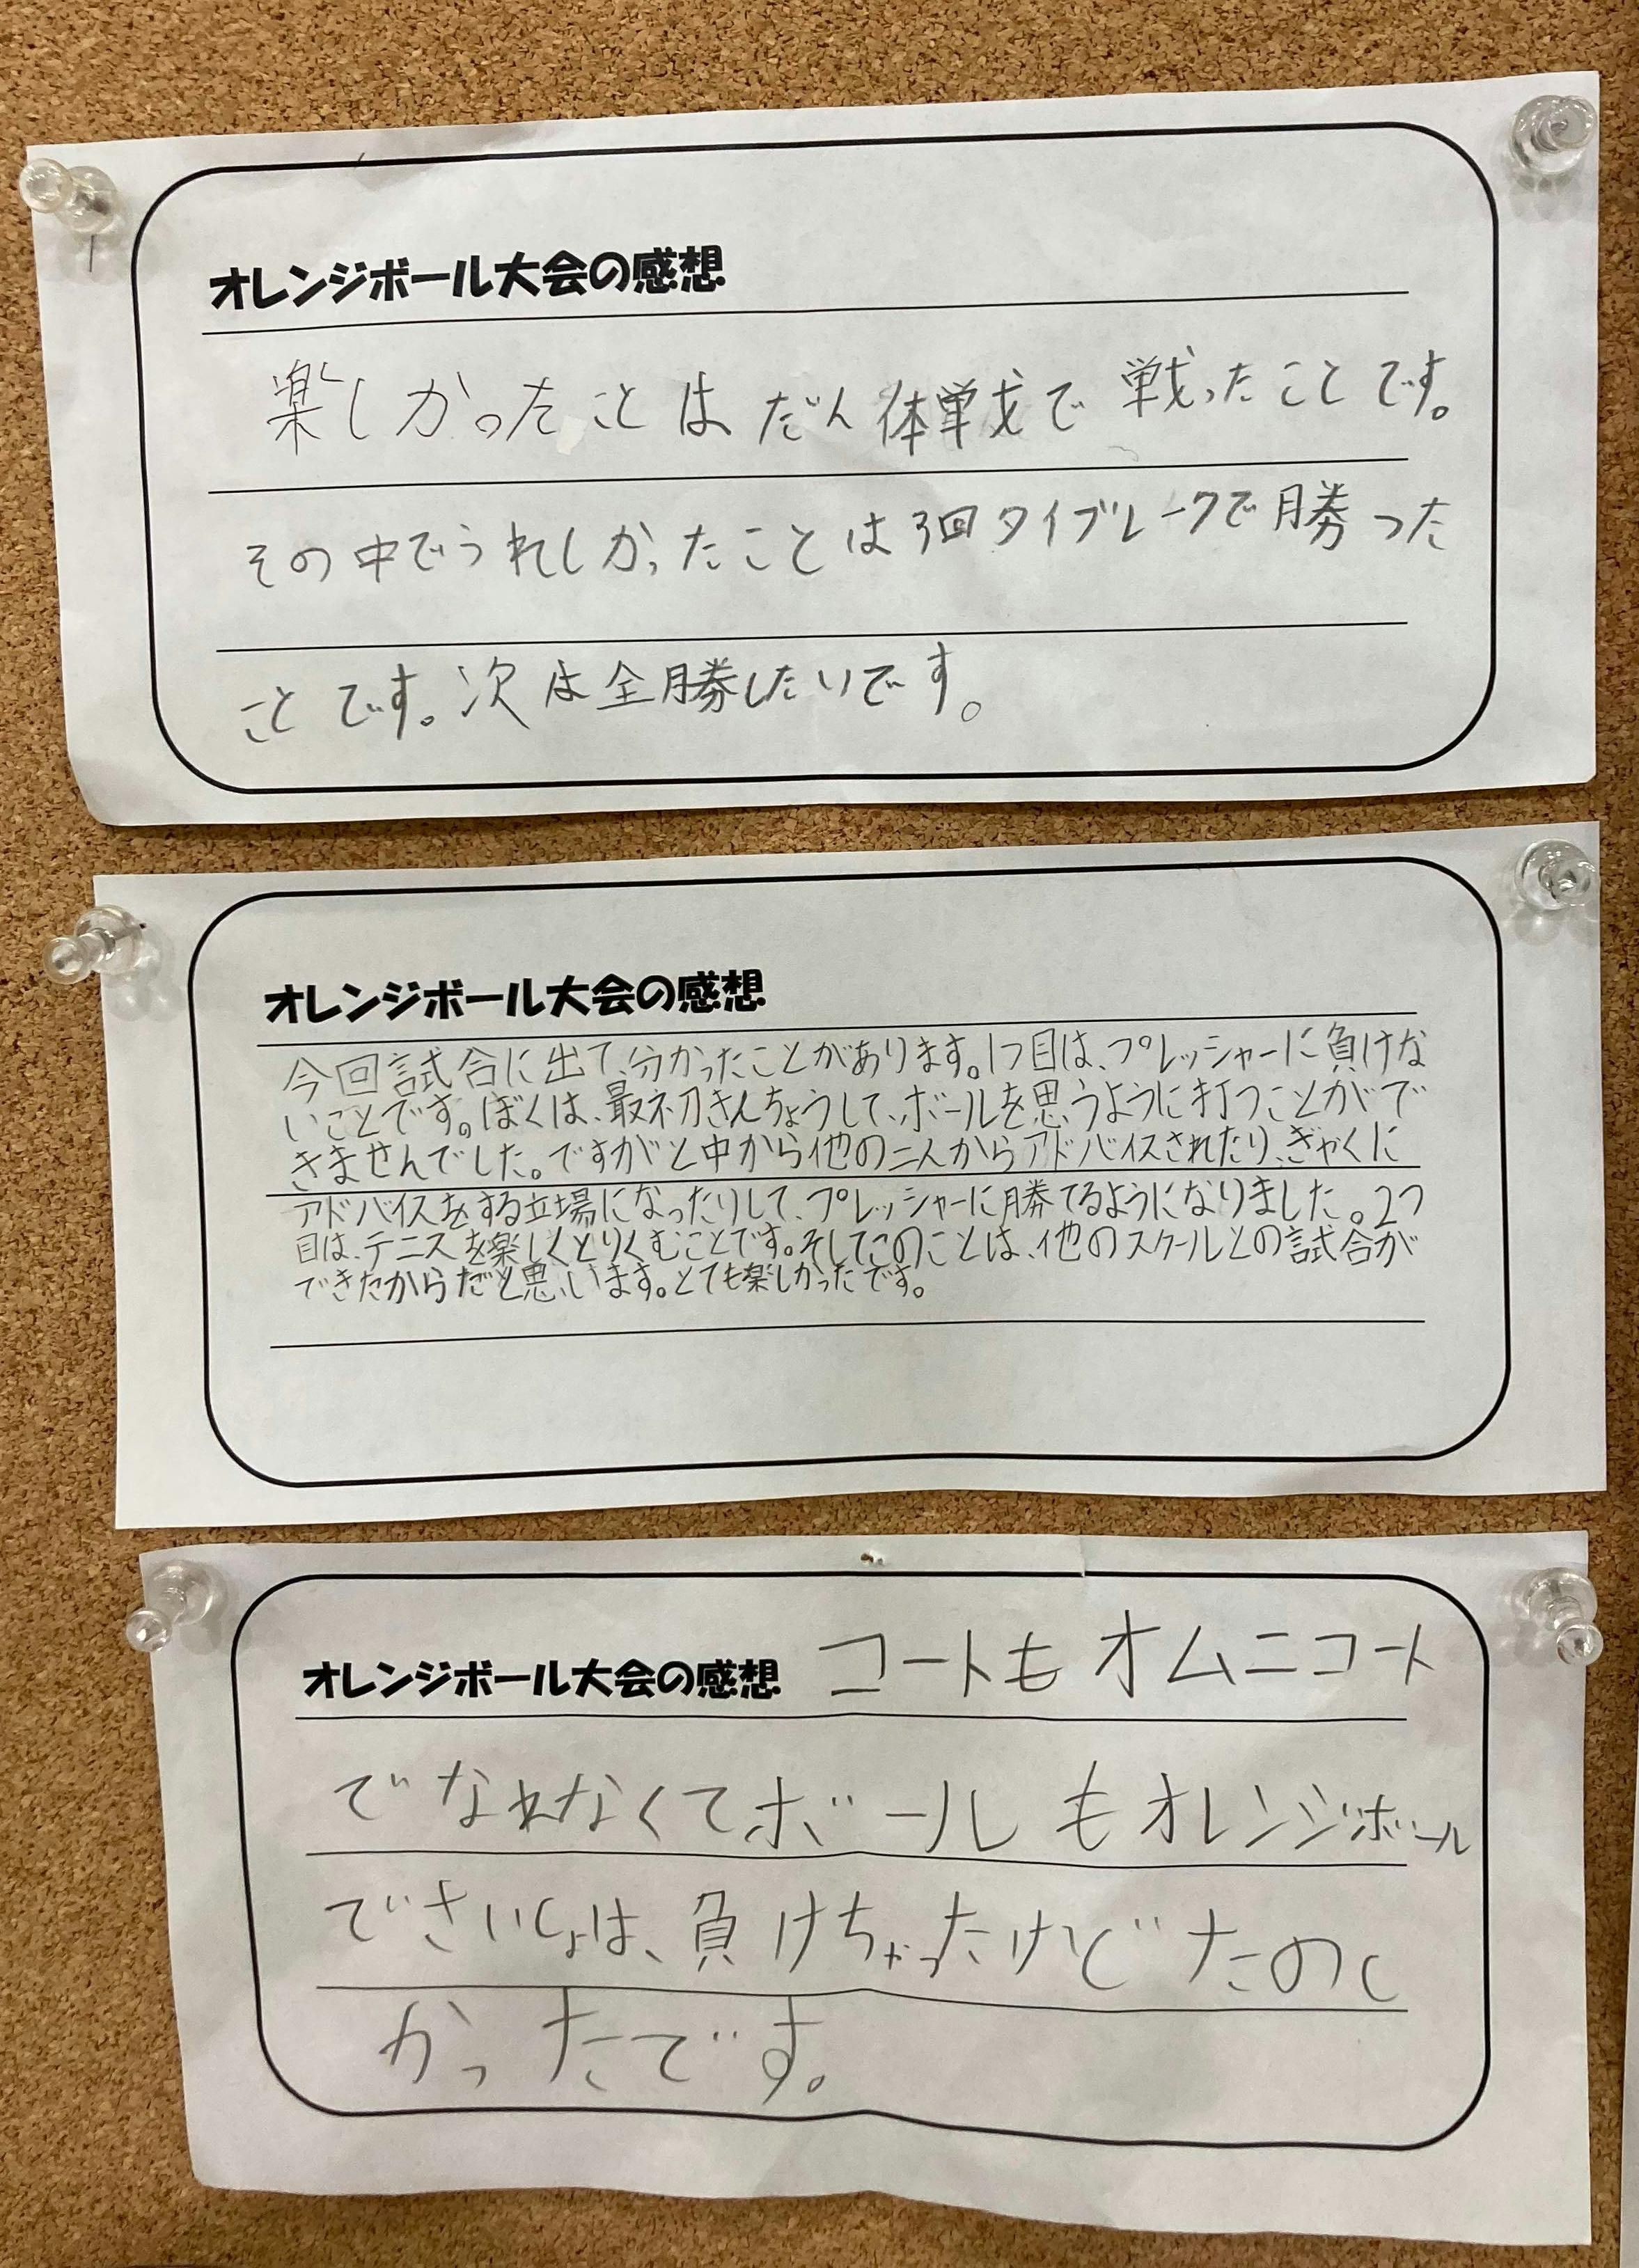 オレンジボール大会の感想
楽しかったことはだん体戦で戦ったことです。
その中でうれしかったことは3回タイブレークで勝った
ことです。次は全勝したいです。
オレンジボール大会の感想
今回試合に出て、分かったことがあります。1つ目は、プレッシャーに負けな
いことです。ぼくは、最初きんちょうして、ボールを思うように打つことがで
きませんでした。ですがと中から他の二人からアドバイスされたり、ぎゃくに
アドバイスをする立場になったりして、プレッシャーに勝てるようになりました。2つ
目は、テニスを楽しくとりくむことです。そしてこのことは、他のスクールとの試合が
できたからだと思います。とても楽しかったです。
オレンジボール大会の感想 コートもオムニコート
でなれなくてボールもオレンジボール
でさいしょは、負けちゃったけどたのし
かったです。